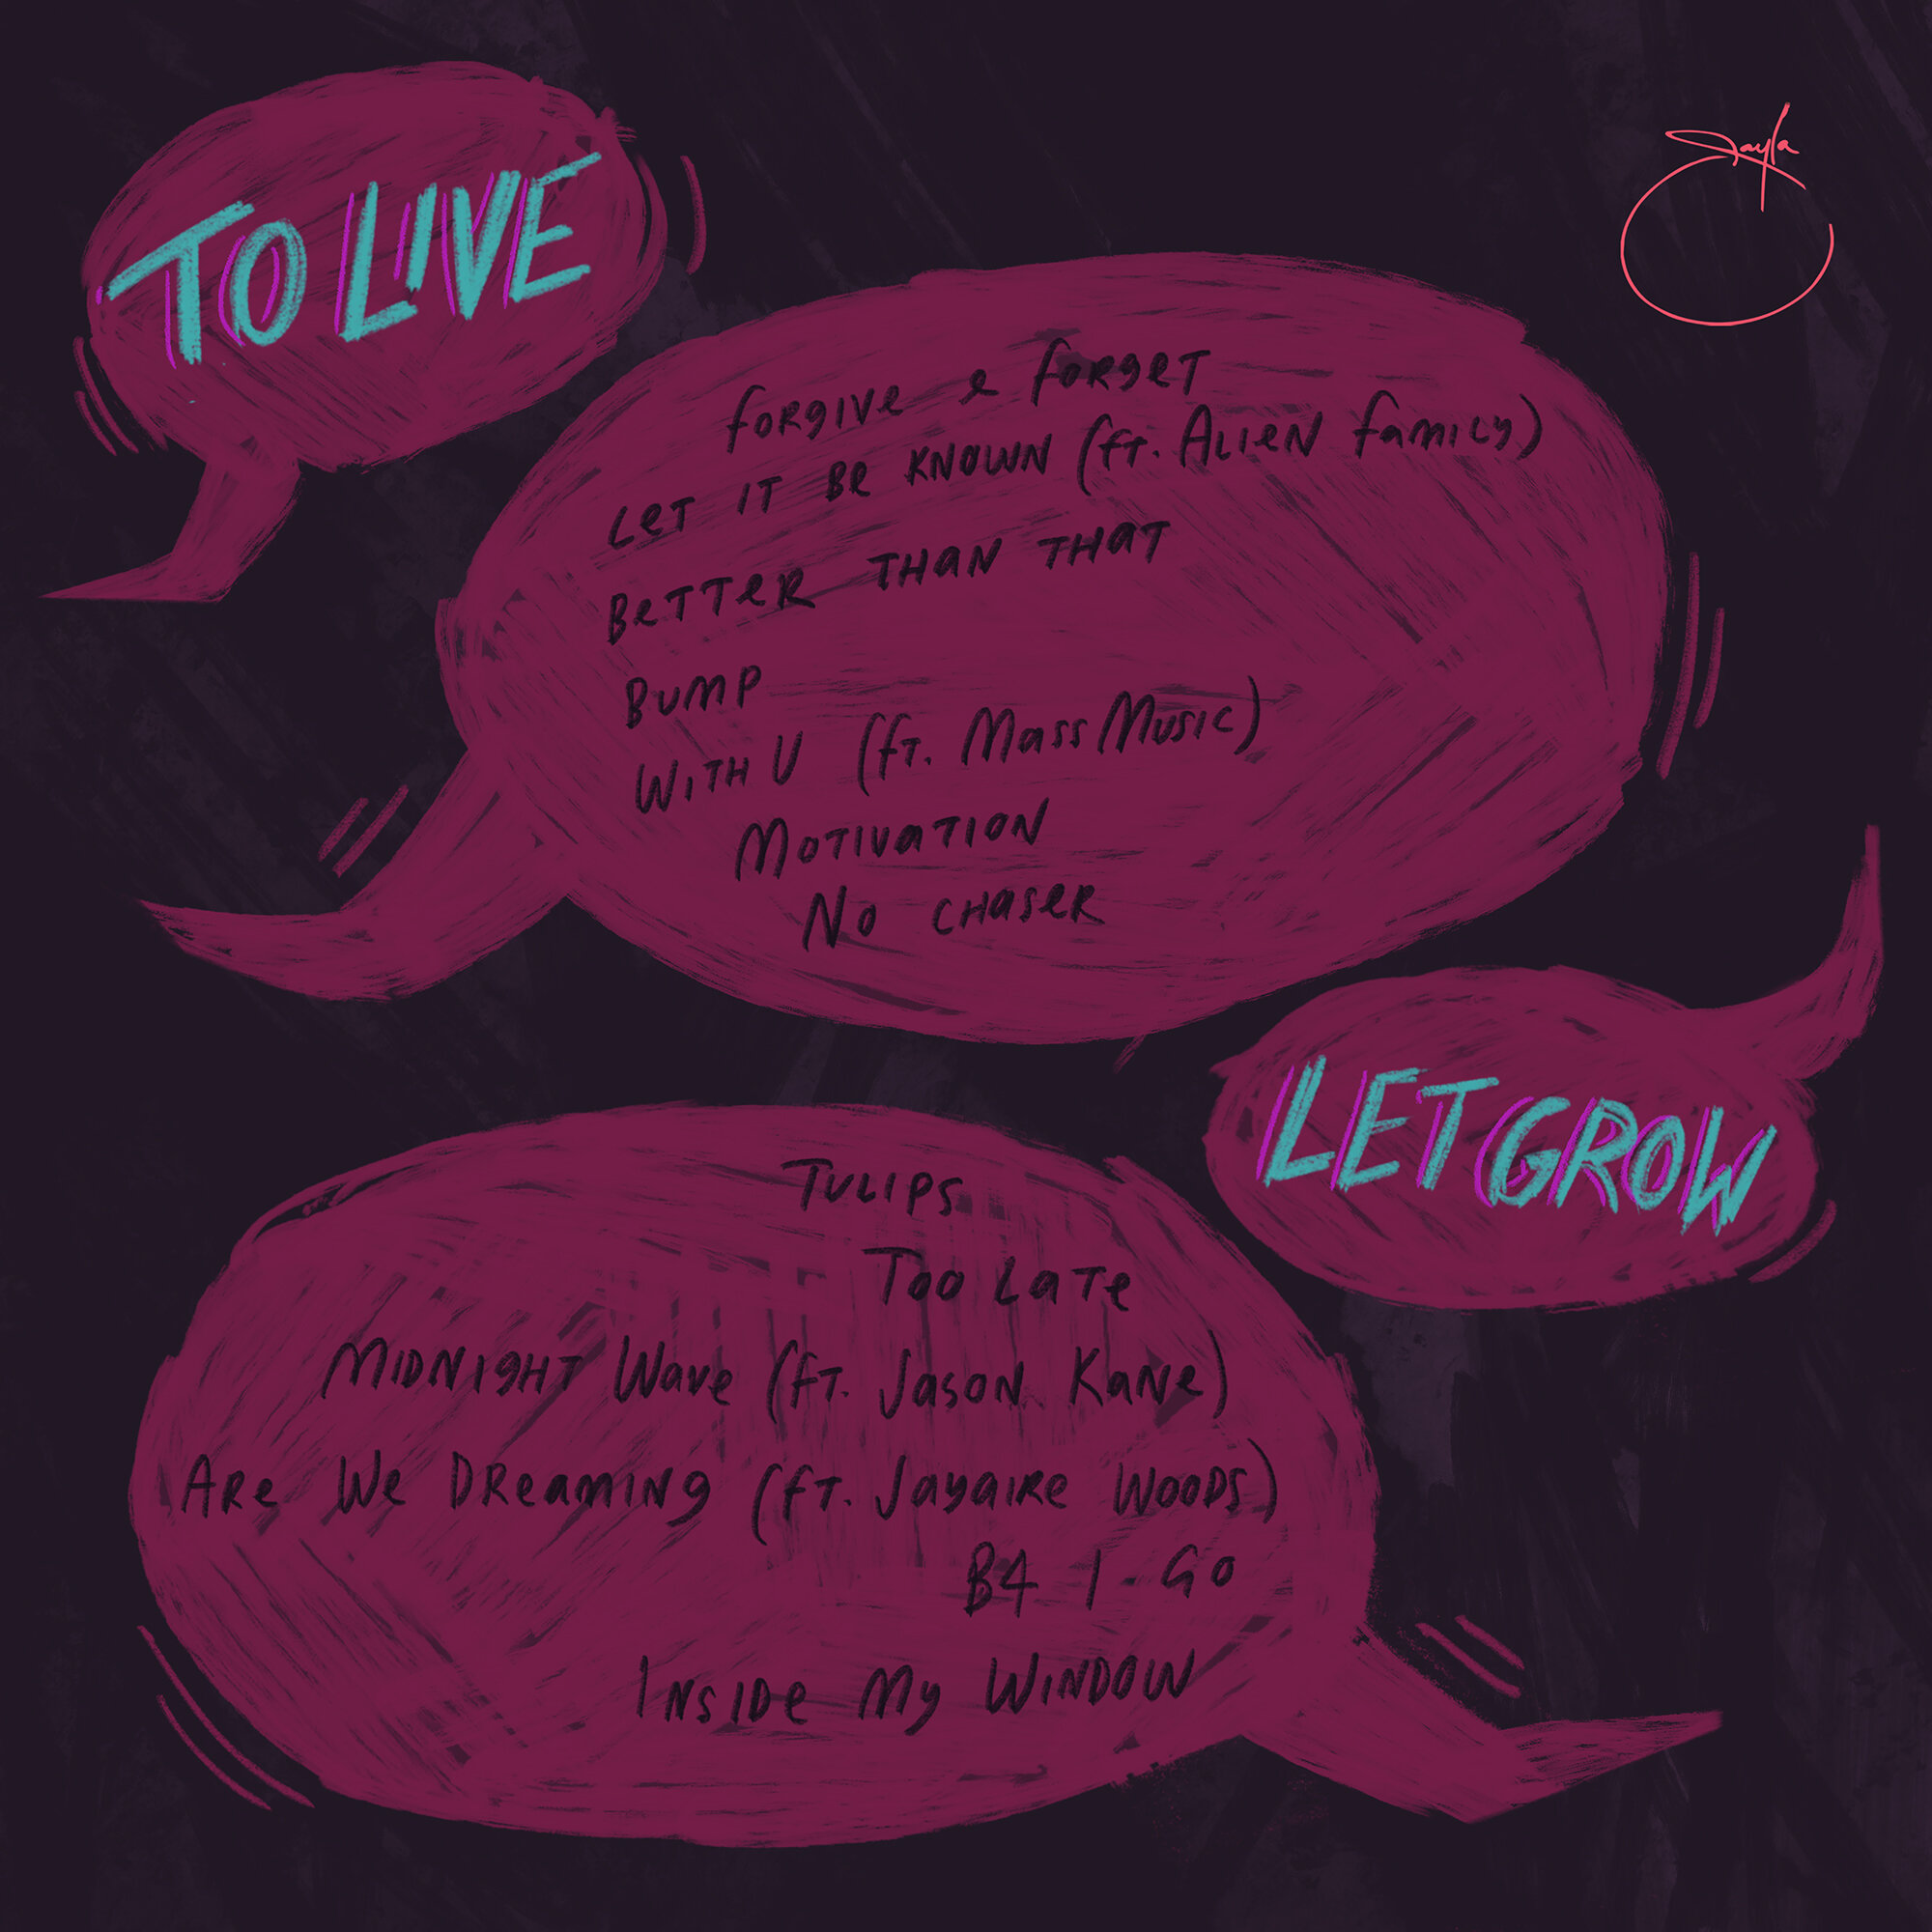 TO LIVE
Jayla
Forgive & Forget
Let it be known (ft. Alien Family)
Better than that
Bump
With U (ft. Mass Music)
Motivation
No chaser
LET GROW
Tulips
Too Late
Midnight Wave (ft. Jason Kane)
Are We Dreaming (ft. Jayaire Woods)
B4 I Go
Inside My Window